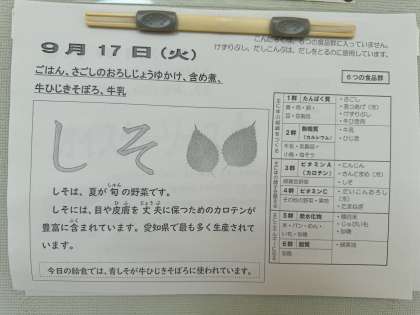 こんだては、６つの食品群に入っていません。
けずりぶし、だしこんぶは、だしをとるのに使用しています。
９月１７日（火）
ごはん、さごしのおろしじょうゆかけ、含め煮、
牛ひじきそぼろ、牛乳
６つの食品群
しそ
しそは、夏が旬の野菜です。
しゅん
しそには、目や皮膚を丈夫に保つためのカロテンが
ひふ
じょうぶ
豊富に含まれています。愛知県で最も多く生産されて
ふく
います。
今日の給食では、青しそが牛ひじきそぼろに使われています。
１群 たんぱく質
魚・肉・卵・
豆・豆製品
・さごし
・けずりぶし
・牛ひき肉
２群 無機質
（カルシウム）
牛乳・乳製品・
小魚・海そう
・牛乳
・ひじき
３群 ビタミンＡ
（カロテン）
緑黄色野菜
・にんじん
・しそ
４群 ビタミンＣ
その他の野菜・果物
・たまねぎ
５群 炭水化物
米・パン・めん・
いも・砂糖
・精白米
・じゃがいも
・砂糖
６群 脂質
油脂